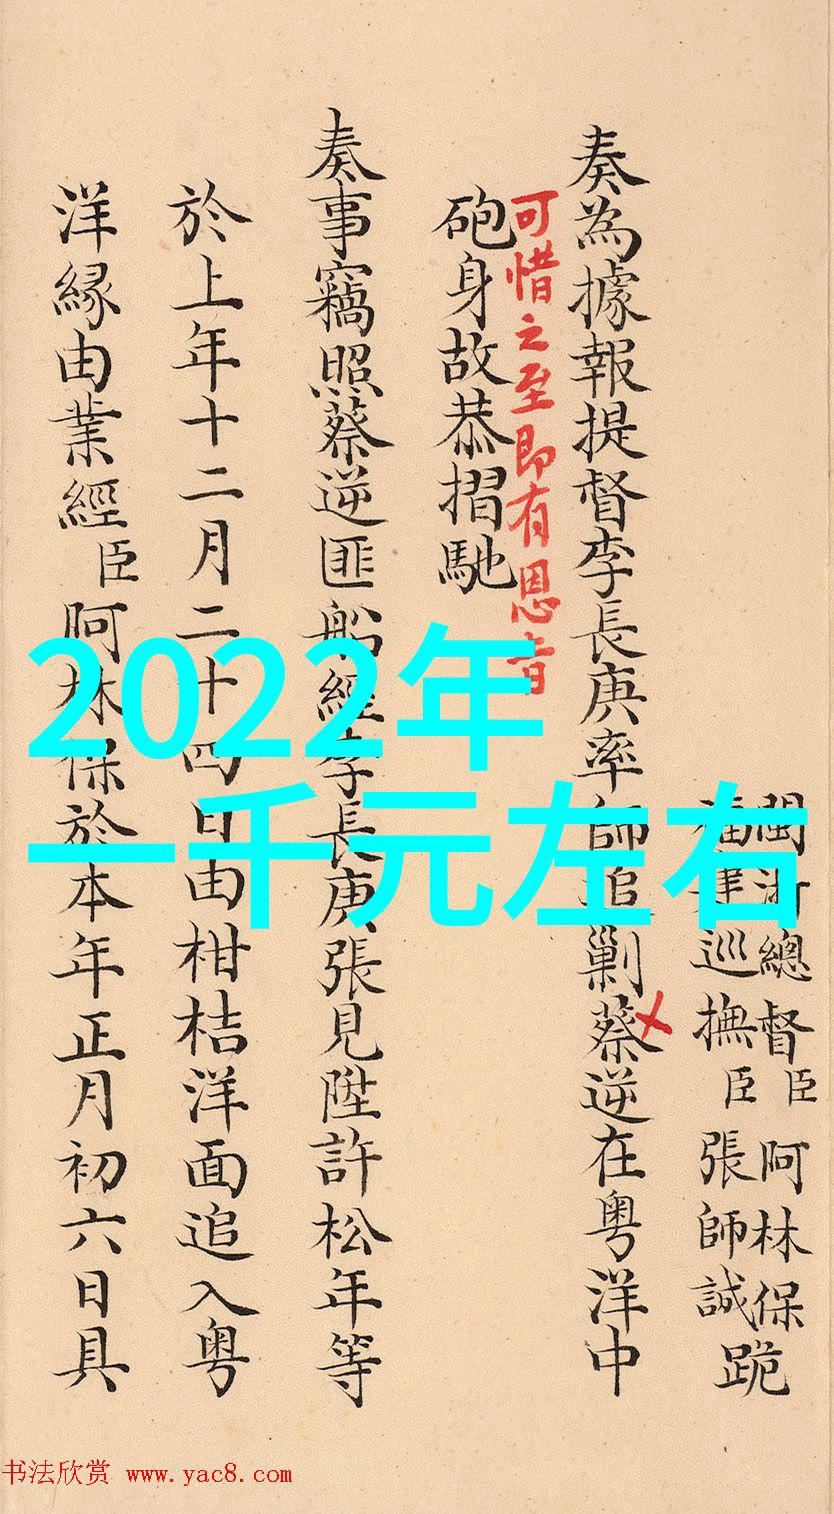 閩浙總督臣阿林保跪
福建巡撫臣張師誠
奏為據報提督李長庚率師追剿蔡逆在粤洋中
可惜之至即有恩旨
砲身故恭摺馳
奏事竊照蔡逆匪船經李長庚張見陞許松年等
於上年十二月二十四日由柑桔洋面追入粤
洋緣由業經臣阿林保於本年正月初六日具
2022年
一千元左右
书法欣赏 www.yac8.com